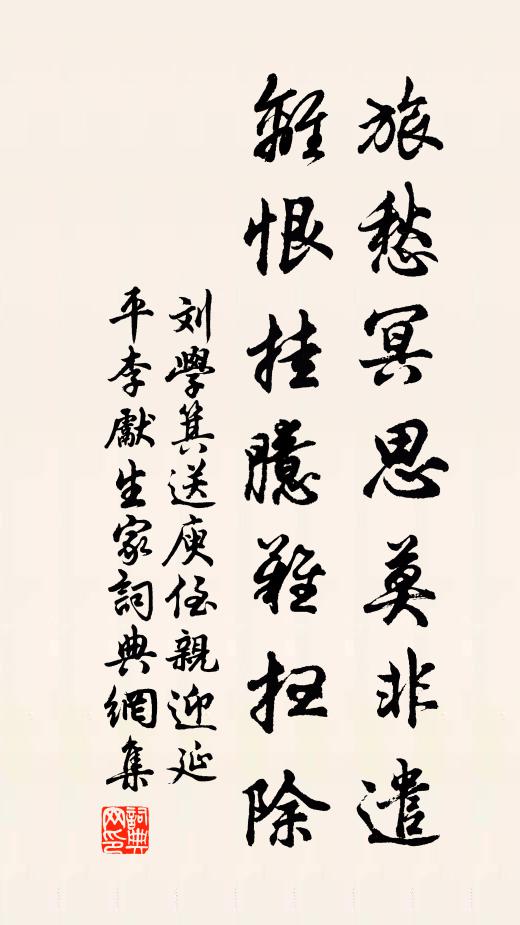 旅愁冥思莫非遣
離恨挂臆難扫除
刘學箕送庾侄親迎延
平李獻生家詞典網集
詞典
网印